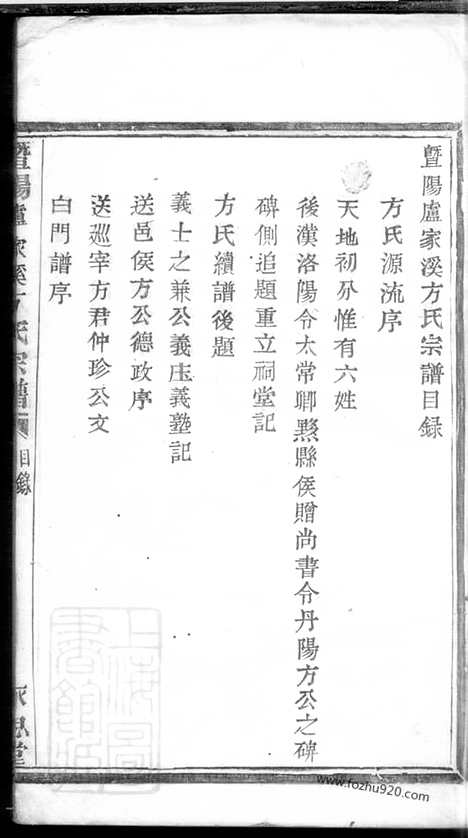 暨陽盧家溪方氏宗譜目録
方氏源流序
天地初分惟有六姓
後漢洛陽令太常卿黟縣侯贈尚書令丹陽方公之碑
碑側追題重立祠堂記
方氏續譜後題
義士之兼公義庄義塾記
送邑侯方公德政序
送巡宰方君仲珍公文
白門譜序
暨陽盧家溪方氏宗譜 目錄
上海圖書館藏
www.fozhu920.com